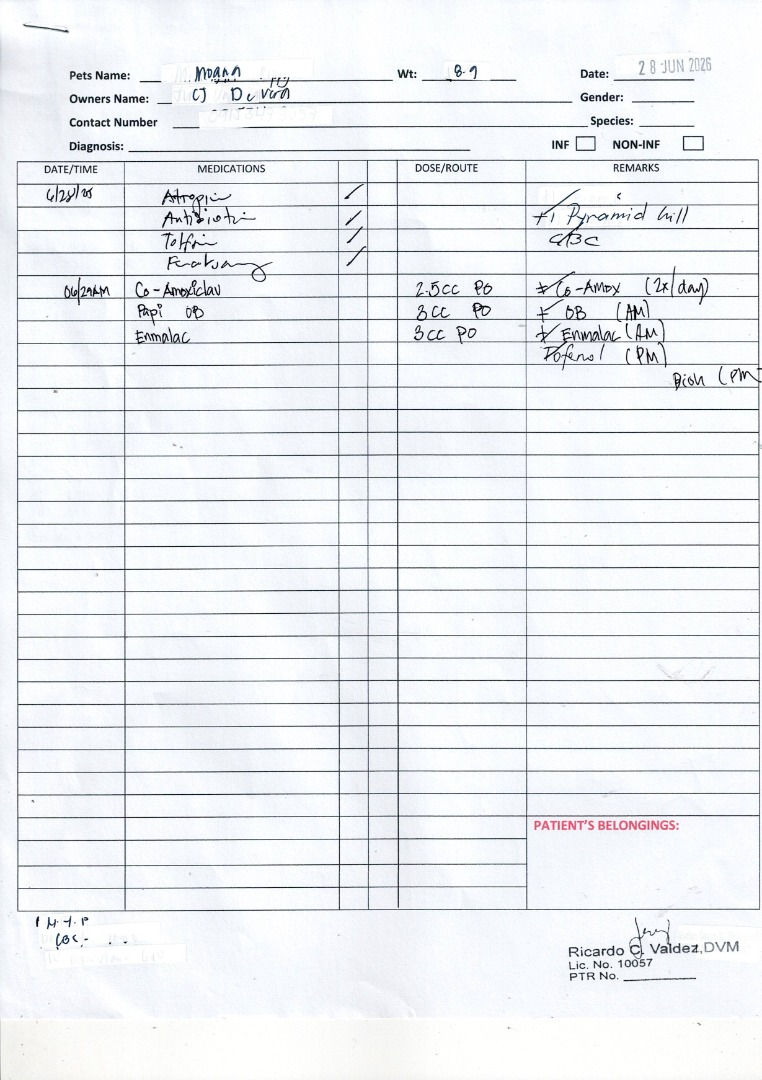 Pets Name: Moana Wt: 8.9 Date: 28 JUN 2026
Owners Name: CJ De Vera Gender:
Contact Number Species:
Diagnosis: INF NON-INF
DATE/TIME MEDICATIONS DOSE/ROUTE REMARKS
Atropin
Antibiotin +1 Pyramid
Tolfin CBC
06/29AM Co-Amoxiclav 2.5cc PO Co-Amox (2x/day)
Papi OB 3cc PO OB (AM)
Enmalac 3cc PO Enmalac (AM)
(PM)
(PM
PATIENT'S BELONGINGS:
CBC-
Ricardo C. Valdez, DVM
Lic. No. 10057
PTR No.